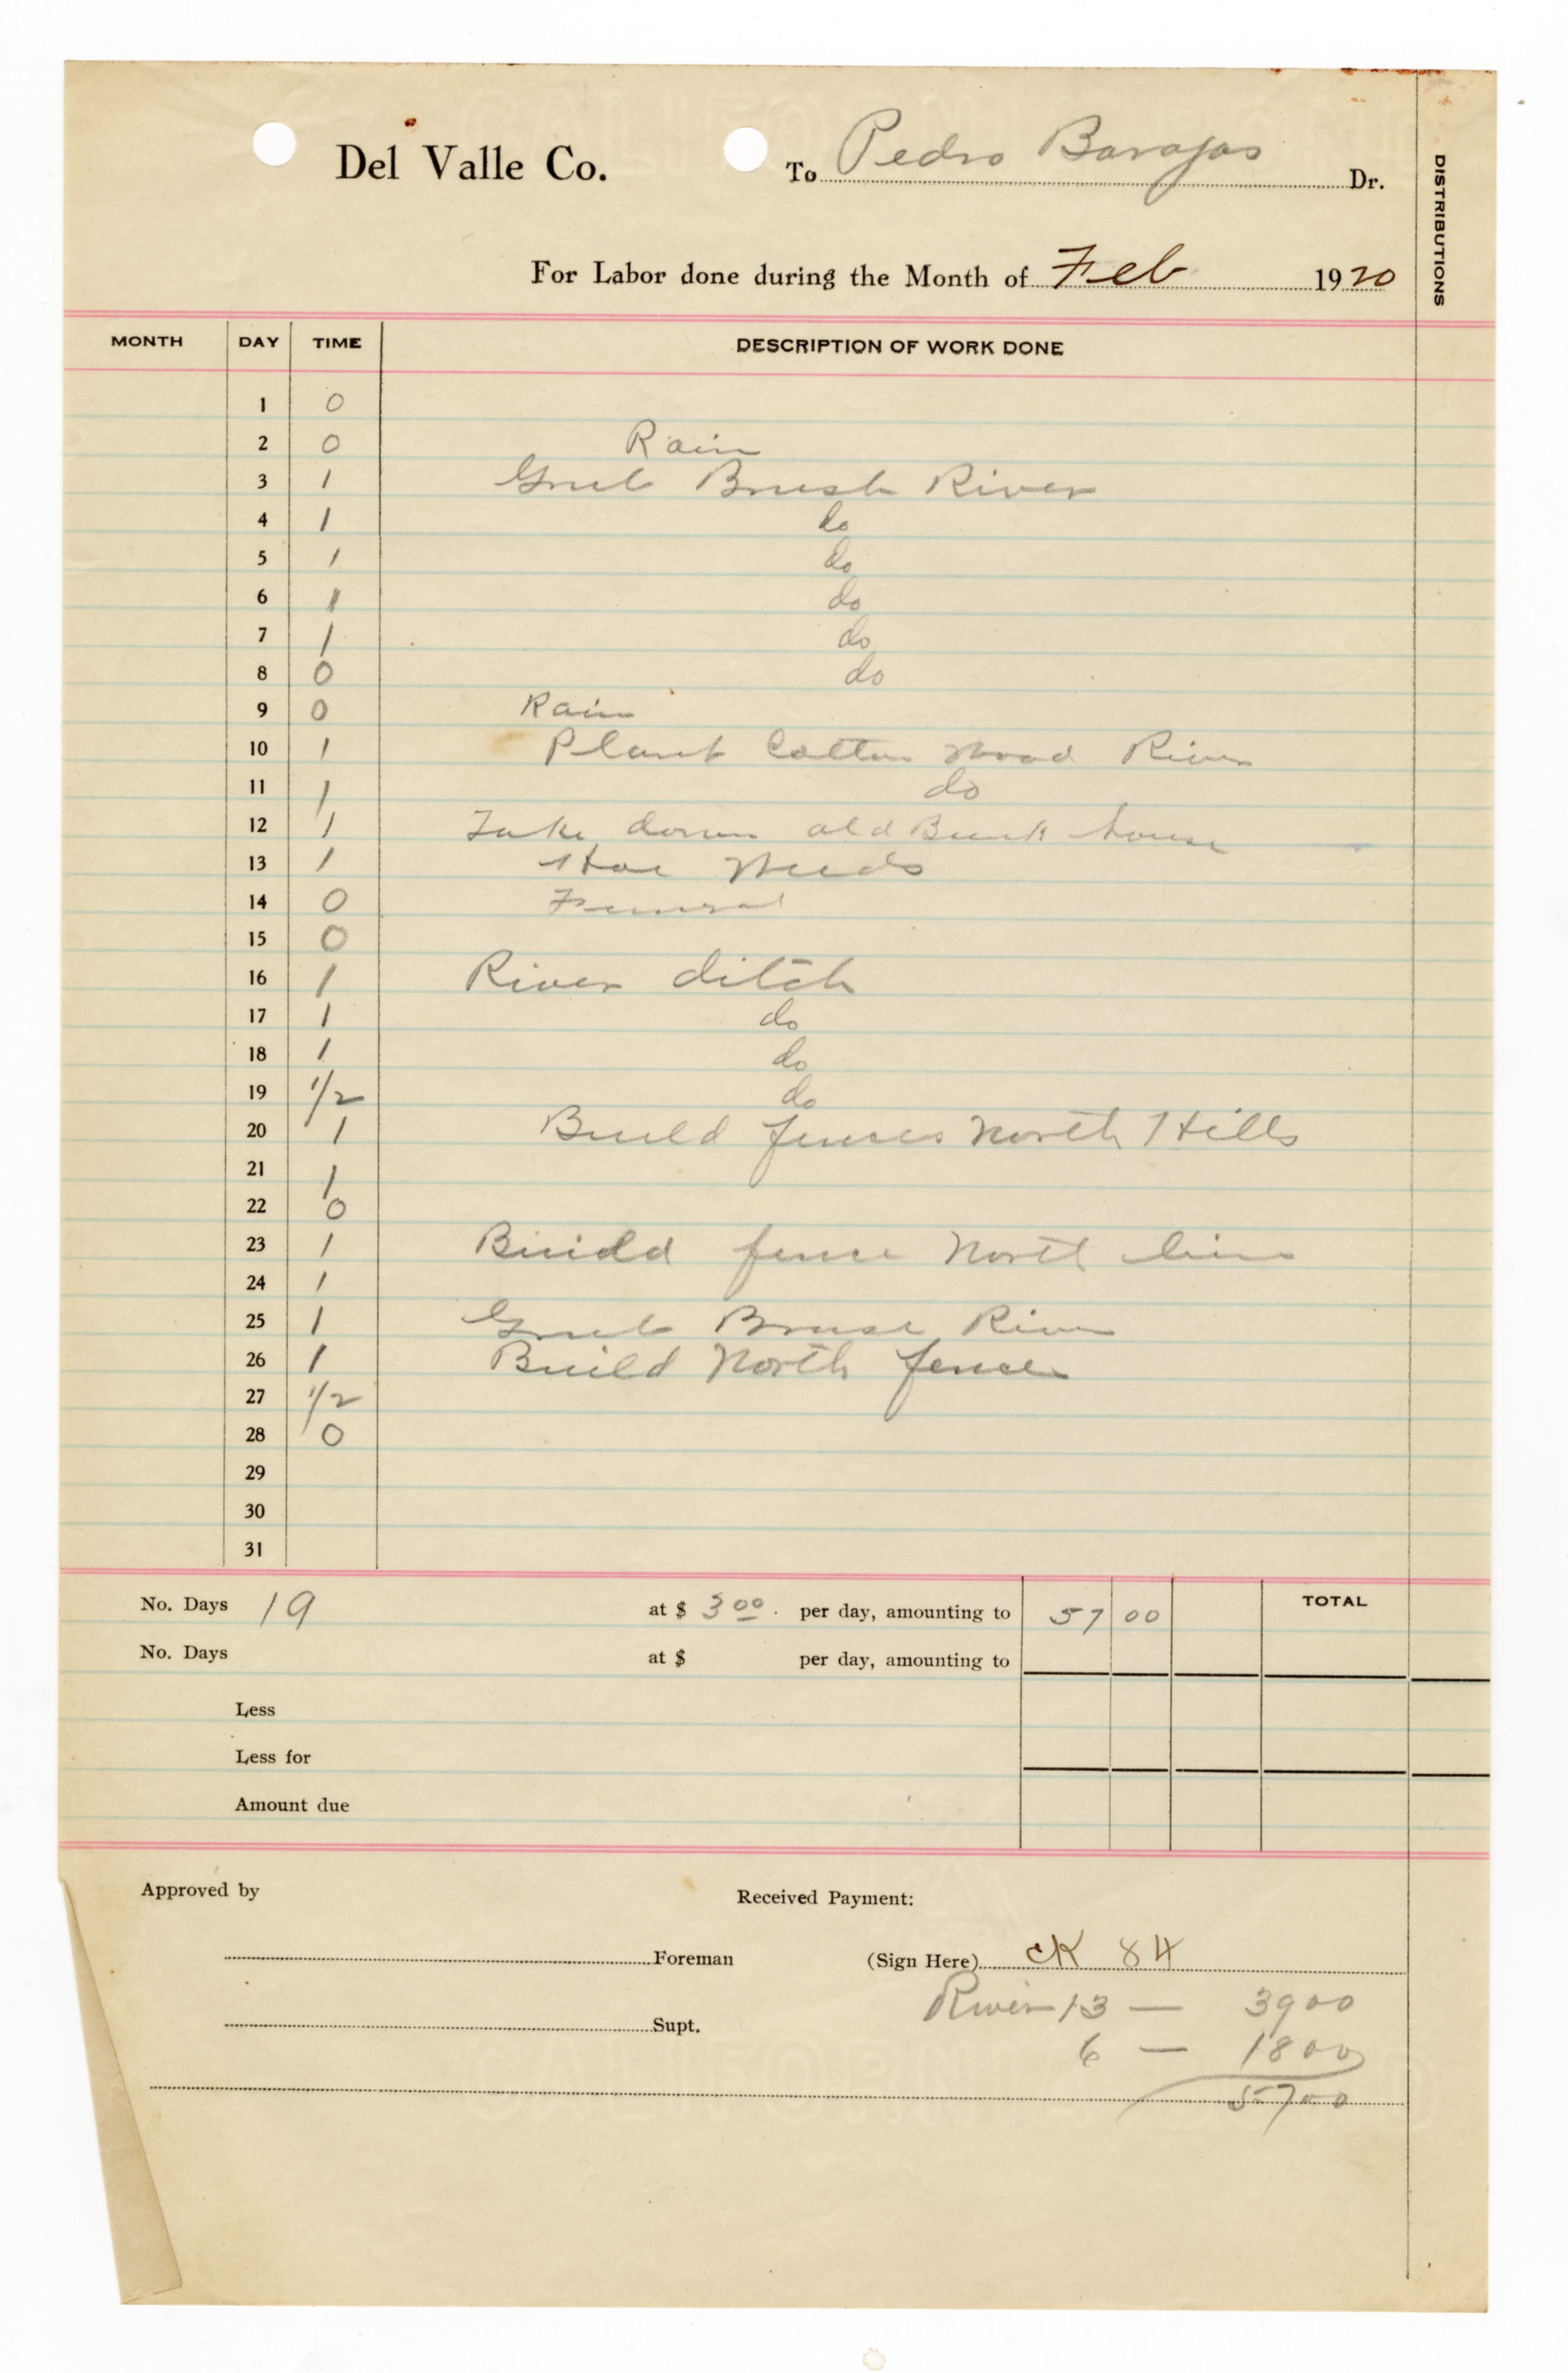 Del Valle Co. To Pedro Barajas Dr.
For Labor done during the Month of Feb 1920
DISTRIBUTIONS
MONTH DAY TIME DESCRIPTION OF WORK DONE
1 0
2 0 Rain
3 1 Grub Brush River
4 1 do
5 1 do
6 1 do
7 1 do
8 0 do
9 0 Rain
10 1 Plant Cotton Wood River
11 1 do
12 1 Take down old Bunk house
13 1 Hoe Weeds
14 0 Funeral
15 0
16 1 River ditch
17 1 do
18 1 do
19 1/2 do
20 1 Build fences North Hills
21 1
22 0
23 1 Build fence North line
24 1
25 1 Grub Brush River
26 1 Build North fence
27 1/2
28 0
29
30
31
No. Days 19 at $ 3 00. per day, amounting to 57 00 TOTAL
No. Days at $ per day, amounting to
Less
Less for
Amount due
Approved by Received Payment:
Foreman (Sign Here) CK 84
River 13 — 3900
Supt.
6 — 1800
5700